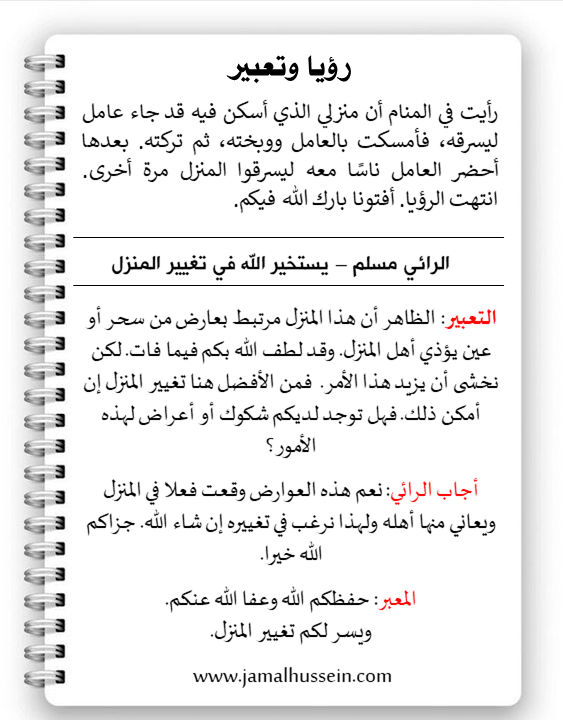 رؤيا وتعبير
رأيت في المنام أن منزلي الذي أسكن فيه قد جاء عامل
ليسرقه، فأمسكت بالعامل ووبخته، ثم تركته. بعدها
أحضر العامل ناسًا معه ليسرقوا المنزل مرة أخرى.
انتهت الرؤيا. أفتونا بارك الله فيكم.
الرائي مسلم – يستخير الله في تغيير المنزل
التعبير: الظاهر أن هذا المنزل مرتبط بعارض من سحر أو
عين يؤذي أهل المنزل. وقد لطف الله بكم فيما فات. لكن
نخشى أن يزيد هذا الأمر. فمن الأفضل هنا تغيير المنزل إن
أمكن ذلك. فهل توجد لديكم شكوك أو أعراض لهذه
الأمور؟
أجاب الرائي: نعم هذه العوارض وقعت فعلا في المنزل
ويعاني منها أهله ولهذا نرغب في تغييره إن شاء الله. جزاكم
الله خيرا.
المعبر: حفظكم الله وعفا الله عنكم.
ويسر لكم تغيير المنزل.
www.jamalhussein.com